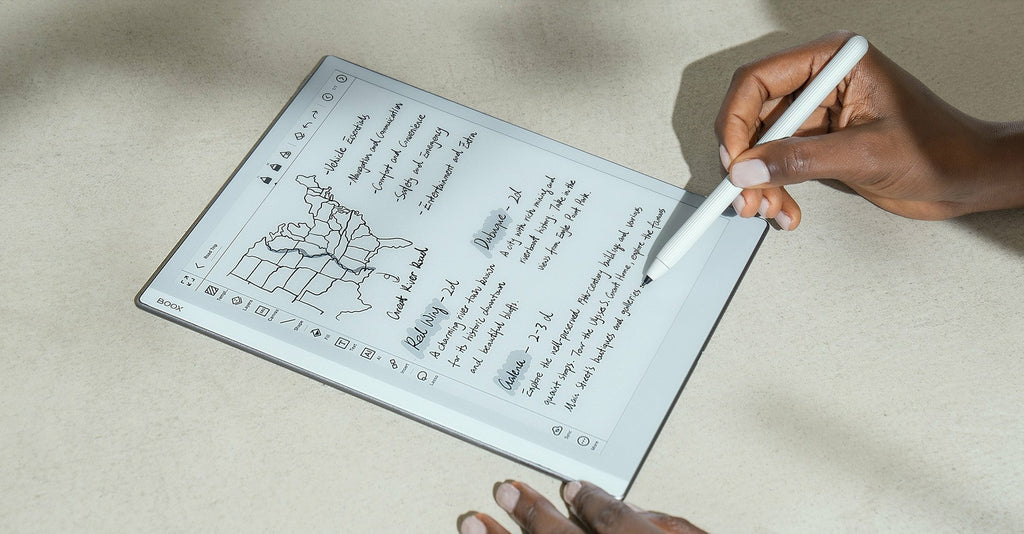 BOOX
Road Trip
Layers
Shape
Fill
Text
AI
Lasso
Sync
More
-Vehicle Essentials
-Navigation and Communication
-Comfort and Convenience
-Safety and Emergency
-Entertainment and Extra
Great River Road
Red Wing - 2d
A charming river town known
for its historic downtown
and beautiful bluffs.
Dubuque - 2d
A city with rich mining and
riverboat history. Take in the
views from Eagle Point Park.
Galena - 2-3 d
Explore the well-preserved 19th-century buildings and various
quaint shops. Tour the Ulysses S. Grant Home. explore the famous
Main Street's boutiques and galleries.